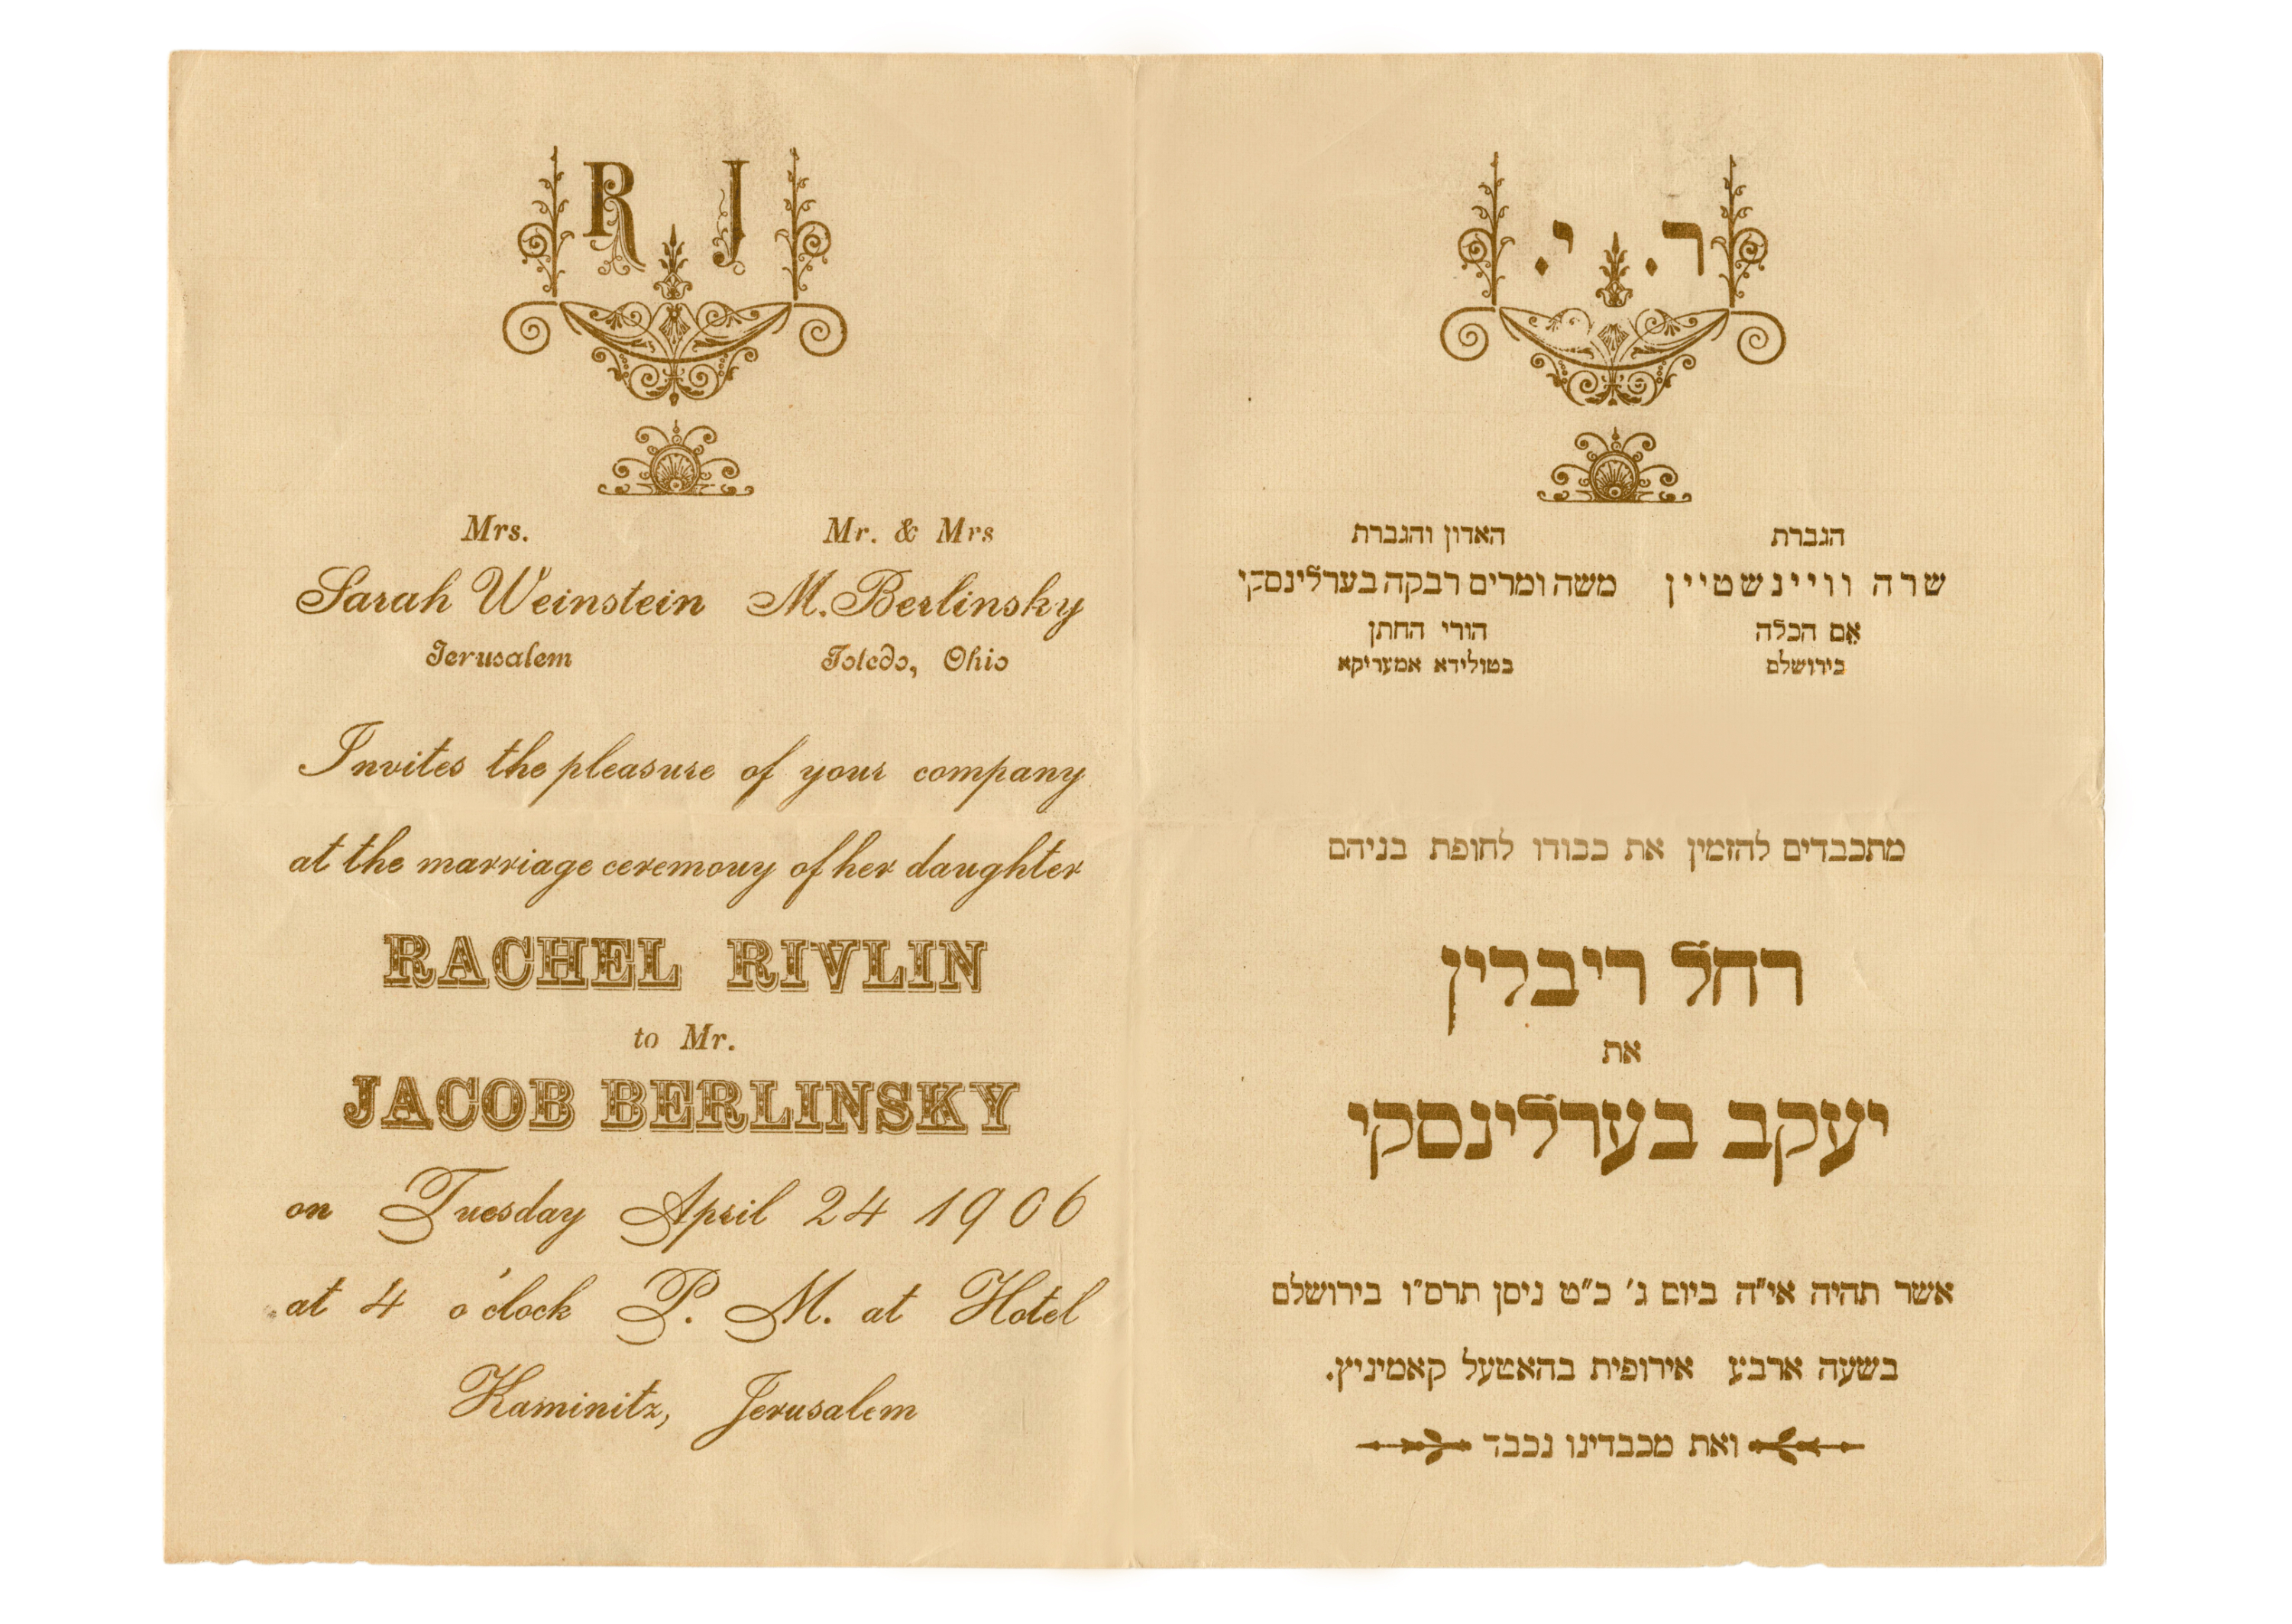 R J
Mrs.
Sarah Weinstein
Jerusalem
Mr. & Mrs
M. Berlinsky
Toledo, Ohio
Invites the pleasure of your company
at the marriage ceremony of her daughter
RACHEL RIVLIN
to Mr.
JACOB BERLINSKY
on Tuesday April 24 1906
at 4 o'clock P. M. at Hotel
Kaminitz, Jerusalem
ר. י.
הגברת
שרה וויינשטיין
אֵם הכלה
בירושלם
האדון והגברת
משה ומרים רבקה בערלינסקי
הורי החתן
בטולידא אמעריקא
מתכבדים להזמין את כבודו לחופת בניהם
רחל ריבלין
את
יעקב בערלינסקי
אשר תהיה אי"ה ביום ג' כ"ט ניסן תרס"ו בירושלם
בשעה ארבע אירופית בהאטעל קאמיניץ.
ואת מכבדינו נכבד